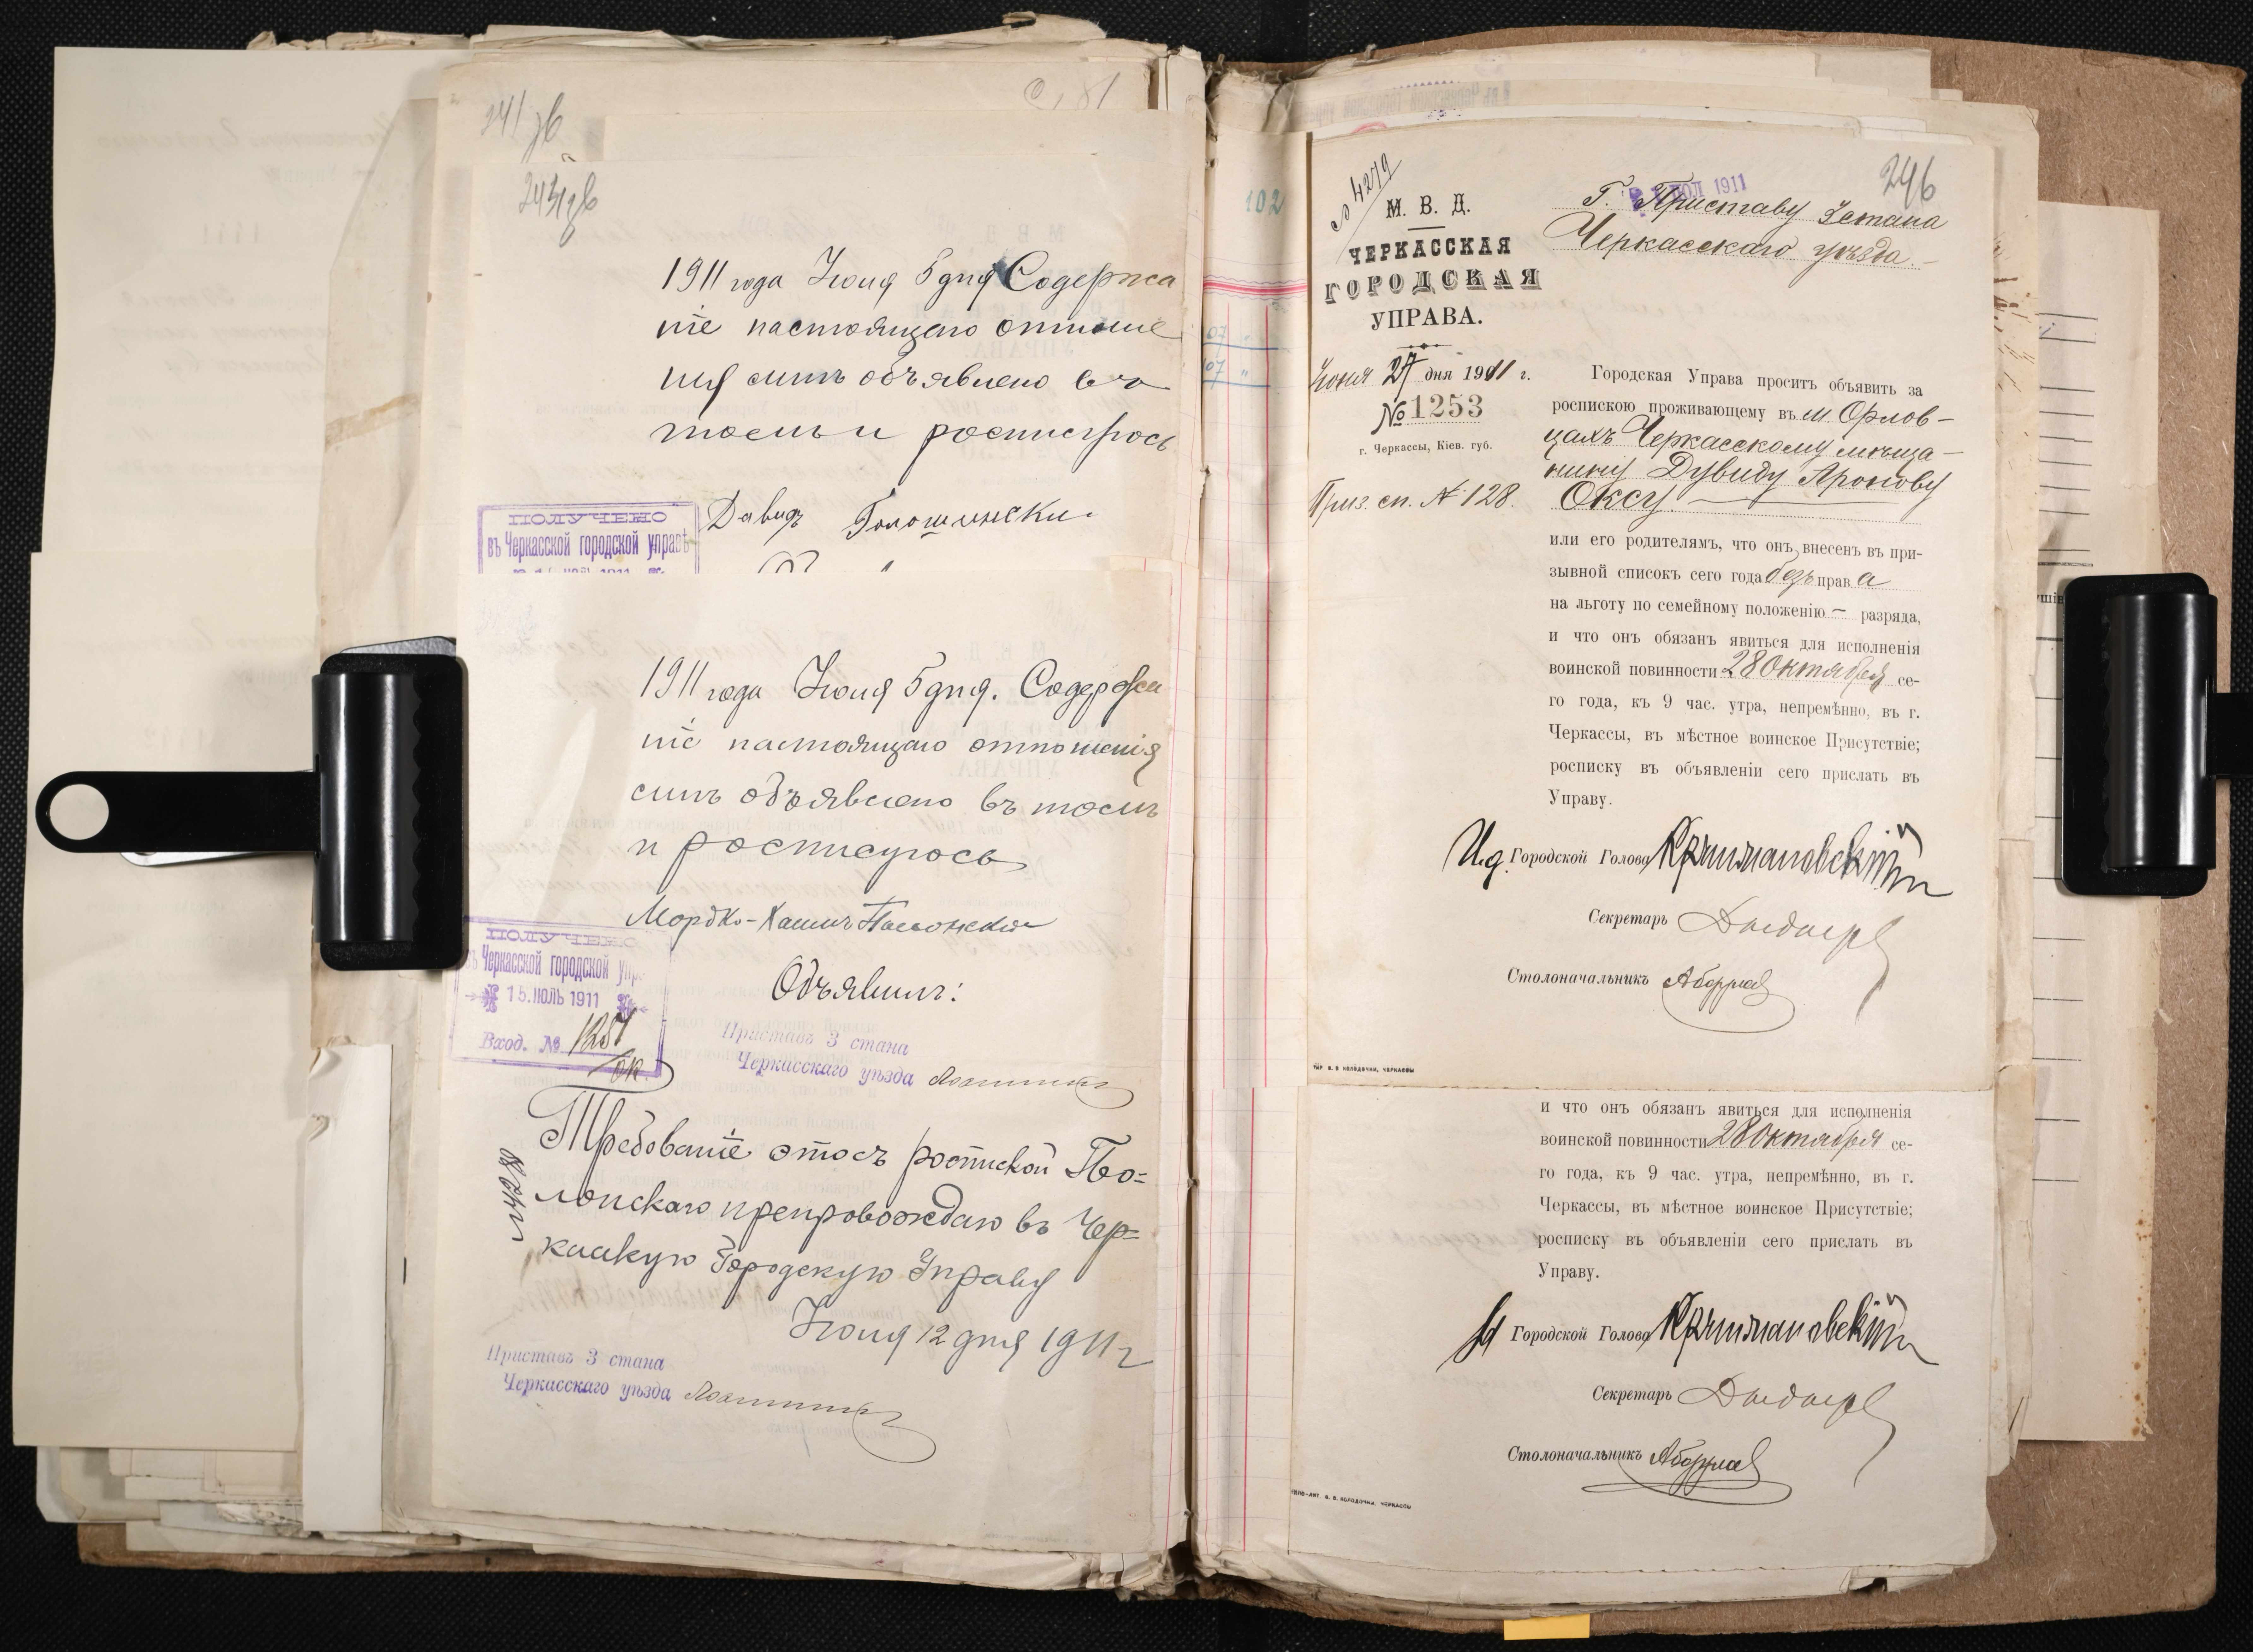 241 зв
243 зв
1911 года Июля 5 дня Содержа
ніе настоящаго отноше
нія мнѣ объявлено въ
томъ и росписуюсь
Давид
ПОЛУЧЕНО
въ Черкасской городской управѣ
1911 года Июля 5 дня. Содержа
ніе настоящаго отношенія
мнѣ объявлено въ томъ
и росписуюсь
Мордко-Хаимъ
Объявилъ:
ПОЛУЧЕНО
въ Черкасской городской упр
15.ИЮЛЬ 1911
Вход. №
Приставъ 3 стана
Черкасскаго уѣзда
Требованіе это съ роспиской По=
лонскаго препровождаю въ Чер=
касскую Городскую Управу
Июля 12 дня 1911 г
Приставъ 3 стана
Черкасскаго уѣзда
102
07 "
07 "
246
№ 4279
М. В. Д.
ЧЕРКАССКАЯ
ГОРОДСКАЯ
УПРАВА.
Июня 27 дня 1911 г.
№ 1253
г. Черкассы, Кіев. губ.
Приз. сп. № 128.
ИЮЛ 1911
Г. Приставу 3 стана
Черкасскаго уѣзда.
Городская Управа проситъ объявить за
роспискою проживающему въ м. Орлов-
цахъ Черкасскому мѣща-
нину Дувиду Аронову
Оксу.
или его родителямъ, что онъ внесенъ въ при-
зывной списокъ сего года безъ права
на льготу по семейному положенію — разряда,
и что онъ обязанъ явиться для исполненія
воинской повинности 28 Октября се-
го года, къ 9 час. утра, непремѣнно, въ г.
Черкассы, въ мѣстное воинское Присутствіе;
росписку въ объявленіи сего прислать въ
Управу.
И.д. Городской Голова
Секретарь
Столоначальникъ
ТИР В. В КОЛОДОЧКИ, ЧЕРКАССЫ
и что онъ обязанъ явиться для исполненія
воинской повинности 28 Октября се-
го года, къ 9 час. утра, непремѣнно, въ г.
Черкассы, въ мѣстное воинское Присутствіе;
росписку въ объявленіи сего прислать въ
Управу.
Городской Голова
Секретарь
Столоначальникъ
ТИПО-ЛИТ. В. В. КОЛОДОЧКИ, ЧЕРКАССЫ